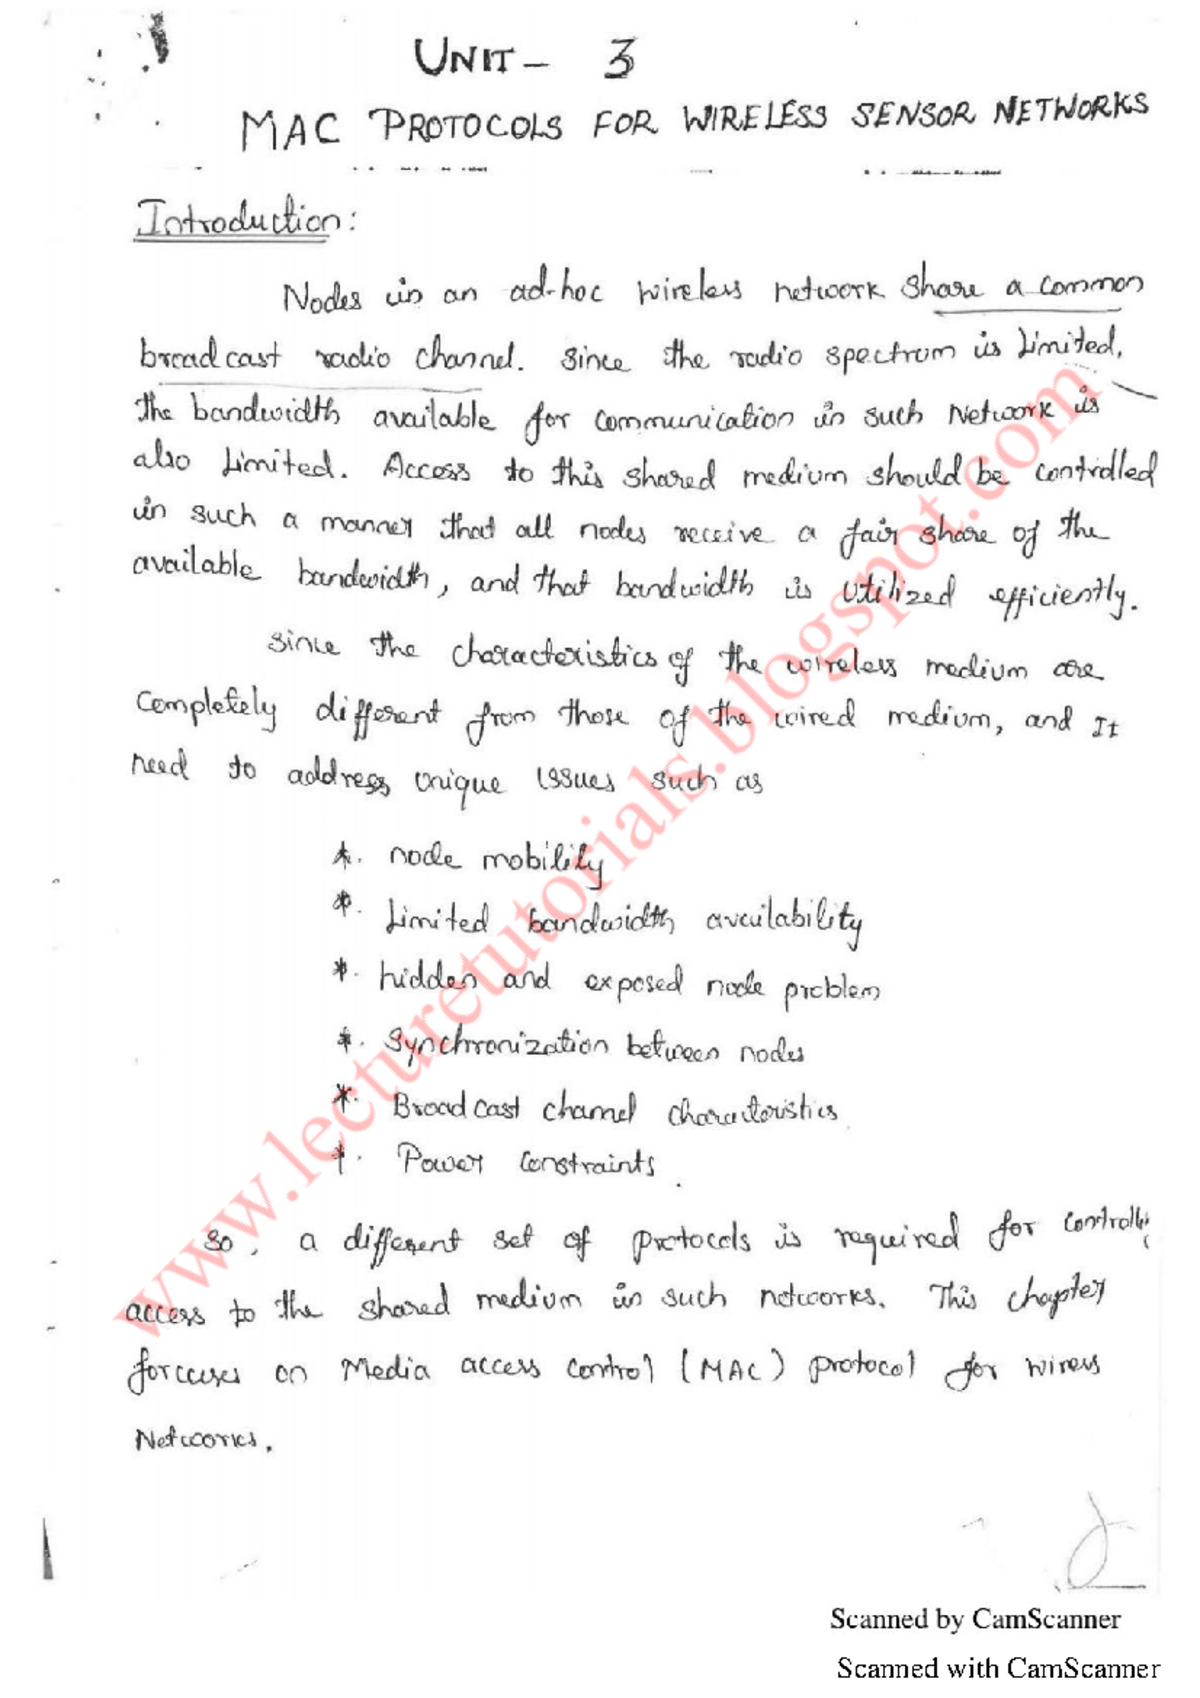 UNIT - 3
MAC PROTOCOLS FOR WIRELESS SENSOR NETWORKS
Introduction:
Nodes in an ad-hoc wireless network share a common
broadcast radio channel. Since the radio spectrum is limited,
the bandwidth available for communication in such Network is
also Limited. Access to this shared medium should be controlled
in such a manner that all nodes receive a fair share of the
available bandwidth, and that bandwidth is utilized efficiently.
Since the characteristics of the wireless medium are
completely different from those of the wired medium, and It
need to address unique issues such as
*. node mobility
*. Limited bandwidth availability
*. hidden and exposed node problem
*. Synchronization between nodes
*. Broadcast channel characteristics
*. Power constraints.
So, a different set of protocols is required for controlli
access to the shared medium in such networks. This chapter
forcuses on Media access control (MAC) protocol for wiress
Networks.
www.lecturetutorials.blogspot.com
Scanned by CamScanner
Scanned with CamScanner